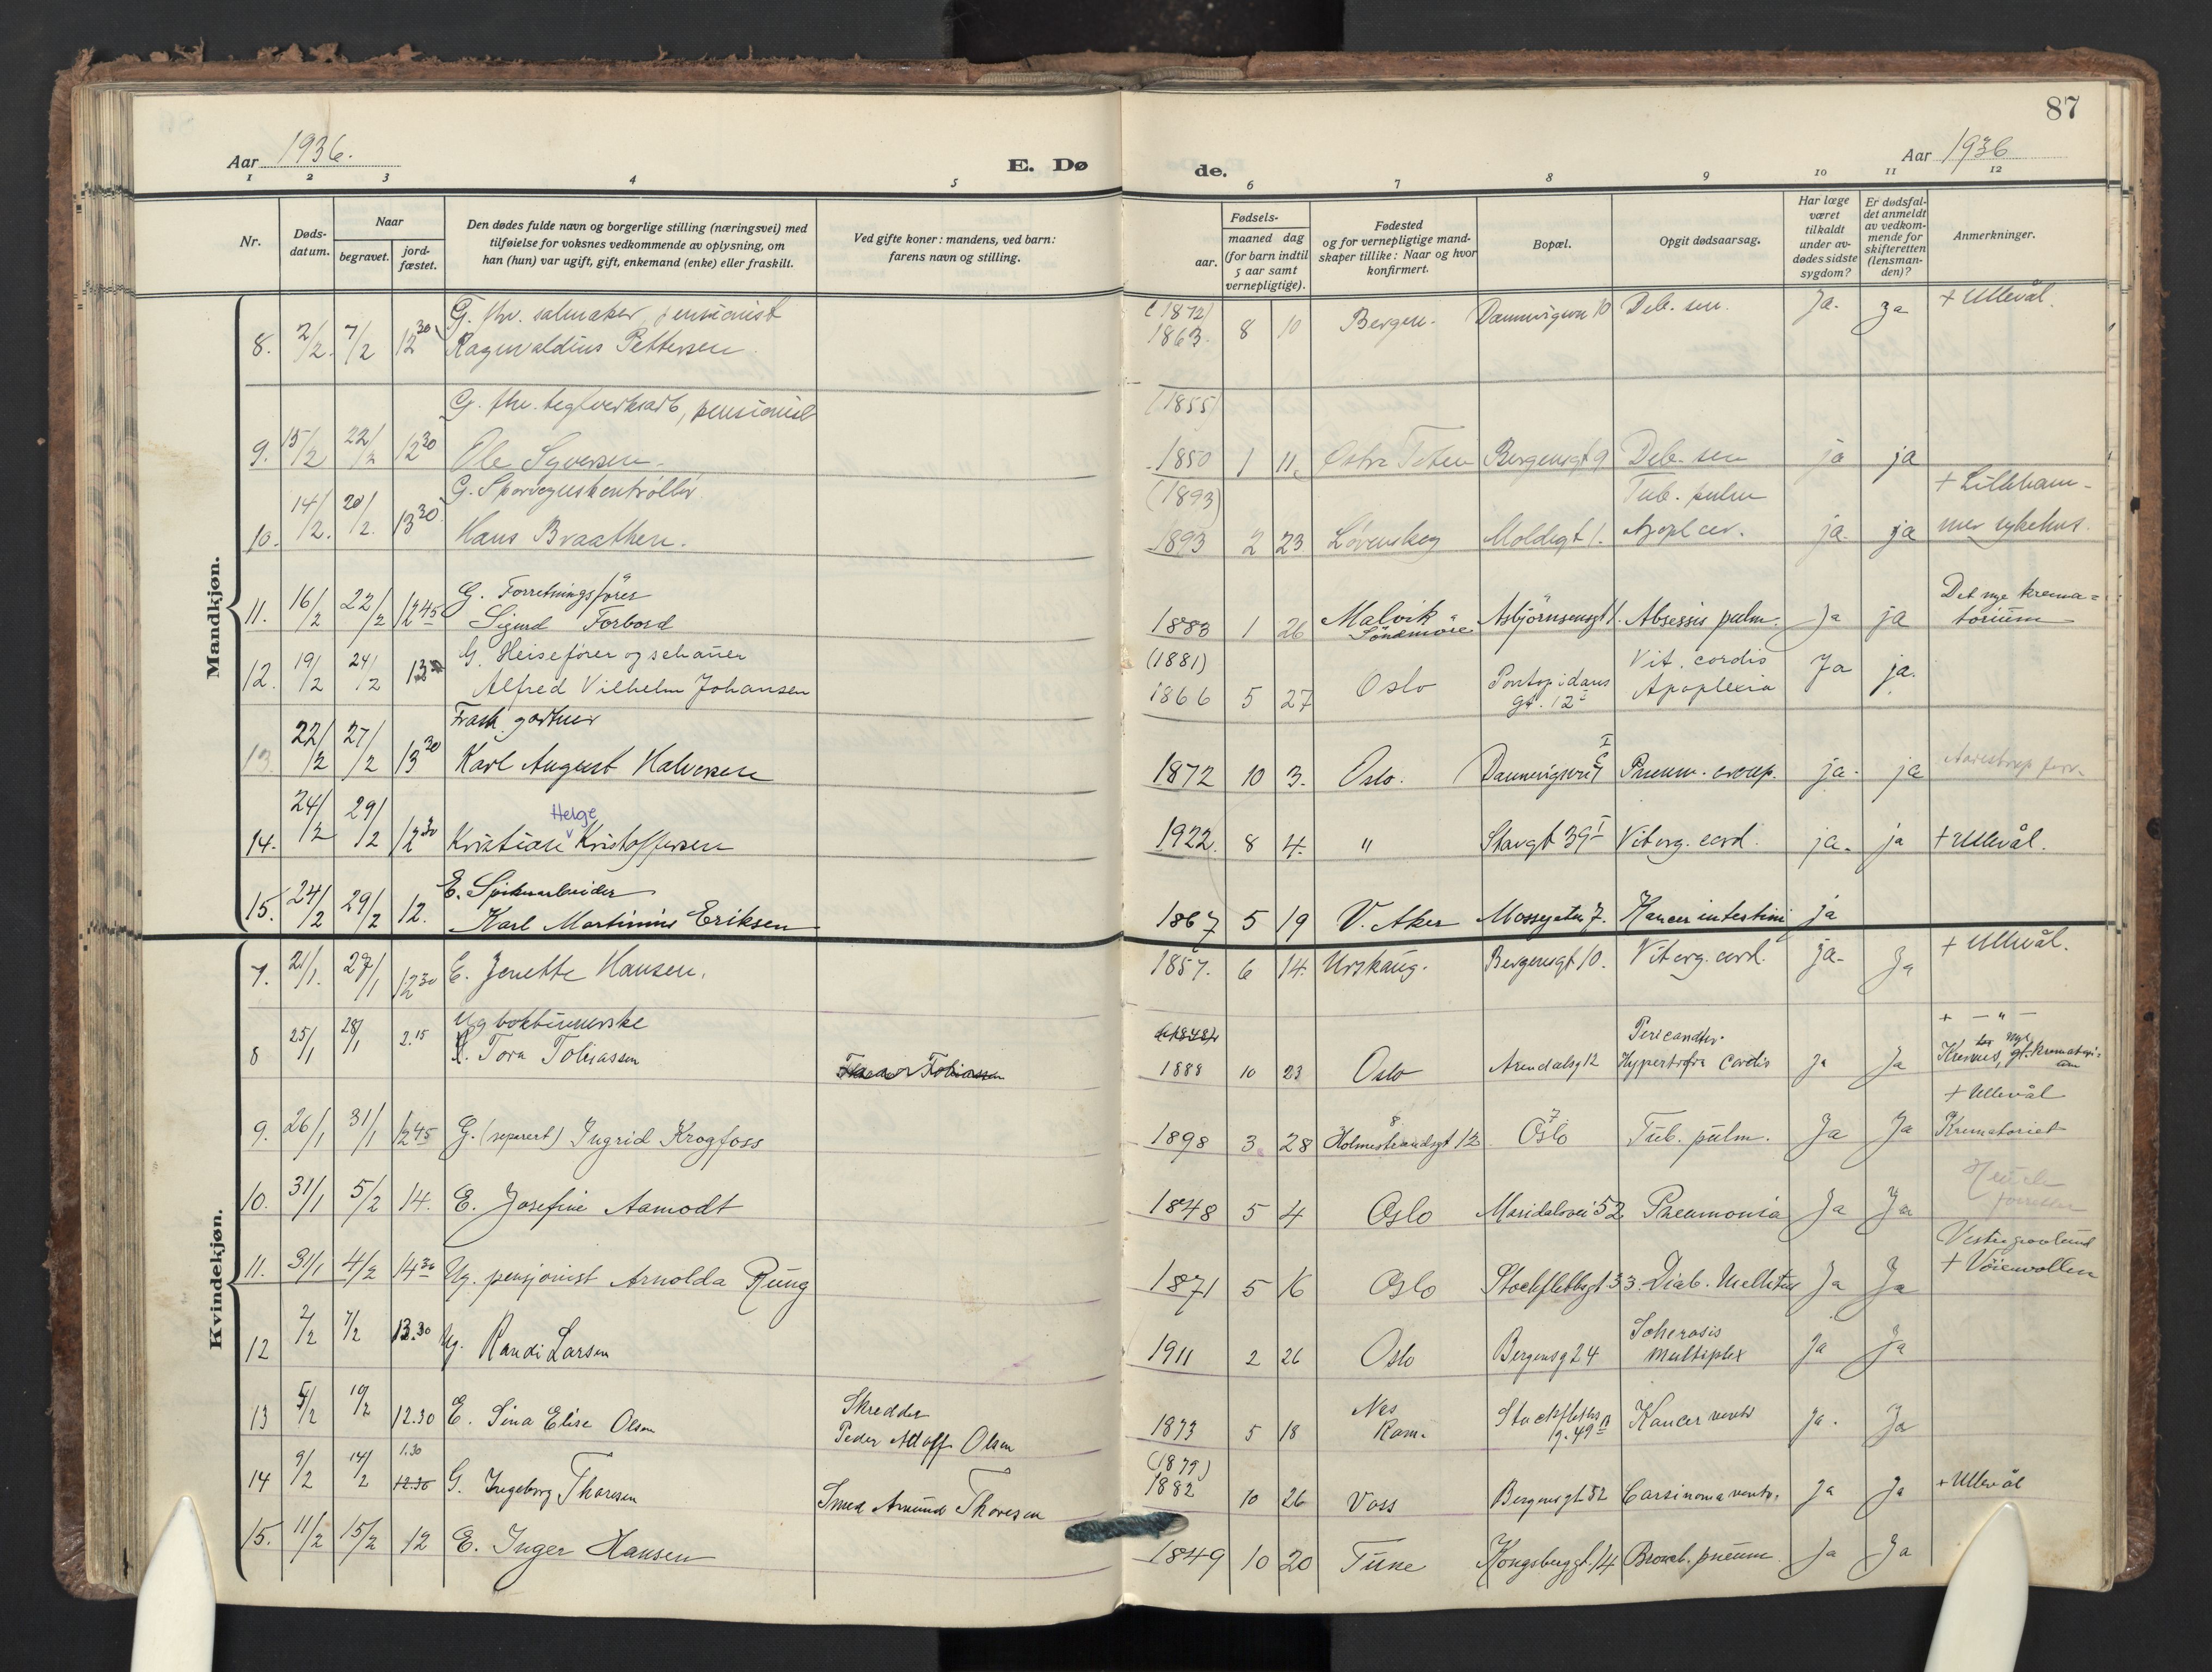 87
Aar 1936.
E. Dø
de.
Aar 1936
1 2 3 4 5 6 7 8 9 10 11 12
Nr.
Døds-
datum.
Naar
begravet.
jord-
fæstet.
Den dødes fulde navn og borgerlige stilling (næringsvei) med
tilføielse for voksnes vedkommende av oplysning, om
han (hun) var ugift, gift, enkemand (enke) eller fraskilt.
Ved gifte koner: mandens, ved barn:
farens navn og stilling.
Fødsels-
aar.
maaned dag
(for barn indtil
5 aar samt
vernepligtige).
Fødested
og for vernepligtige mand-
skaper tillike: Naar og hvor
konfirmert.
Bopæl.
Opgit dødsaarsag.
Har læge
været
tilkaldt
under av-
dødes sidste
sygdom?
Er dødsfal-
det anmeldt
av vedkom-
mende for
skifteretten
(lensman-
den)?
Anmerkninger.
Mandkjøn.
G. fhv. salmaker, pensionist
(1872)
8. 2/2. 7/2 12 30 Ragnvaldius Pettersen 1863. 8 10 Bergen. Dannevigsvn 10 Deb. sen. Ja. Ja + Ullevål.
G. fhv. teglverksarb, pensionist
(1855)
9. 15/2 22/2 12 30 Ole Syversen 1850 1 11. Østre Toten Bergensgt 9 Deb. sen ja ja
G. Sporveguskontrollör (1893) Tub. pulm + Lilleham-
10. 14/2. 20/2. 13 30 Hans Braathen. 1893 2 23 Lørenskog Moldegt 1. Apopl. cer. ja. ja mer sykehus.
G. Forretningsfører Det nye krema=
11. 16/2 22/2 12 45 Sigurd Forbord 1883 1 26 Malvik Söndmöre Asbjörnsensgt 1. Absessis pulm. Ja ja torium
G. Heisefører og (1881) Vit. cordis
12. 19/2 24/2 13 30 Alfred Vilhelm Johansen 1866 5 27 Oslo Pontopidans gt. 12 Apoplexia Ja ja.
Frask. gartner
13. 22/2 27/2 13 30 Karl August Halvorsen 1872 10 3. Oslo. Pneum. croup. ja. ja
Helge
14. 24/2 29/2 12 30 Kristian Kristoffersen 1922. 8 4. " Stavgt 39 I Vit org. cord. ja. ja + Ullevål.
E.
15. 24/2 29/2 12. Karl Martinius Eriksen 1867 5 19 V. Aker Mossegaten 7. Kancer intestini ja
Kvindekjøn.
7. 21/1. 27/1 12 30 E. Jenette Hansen. 1857. 6 14. Urskaug. Bergensgt 10. Vit org. cord. ja. Ja + Ullevål.
Ug bokbinnerske Pericarditis. + — " —
8 25/1 28/1 2.15 Tora Tobiassen 1888 10 23 Oslo Arendalsg 12 Hypertrofia Cordis Ja Ja
+ Ullevål
9. 26/1 31/1 12 45 G. (seperert) Ingrid Krogfoss 1898 3 28 Holmestrandsgt 12 Oslo Tub. pulm. Ja Ja Krematoriet
10. 31/1 5/2 14. E. Josefine Aamodt 1848 5 4 Oslo Maridalsvei 52 Pneumonia Ja Ja
Vestre gravlund
11. 31/1 4/2 14 30 Ug. pensjonist Arnolda Rung 1871 5 16 Oslo Stockflethsgt 33. Diab. Mellitus Ja Ja + Vöienvollen
12 2/2 7/2 13.30 Ug. Randi Larsen 1911 2 26 Oslo Bergensg 24 Scherosis multiplex Ja Ja
Skredder Nes
13 5/2 10/2 12.30 E. Lina Elise Olsen Peder Adolf Olsen 1873 5 18 Rom. Stockfleths g. 49 B Kancer ventr. Ja. Ja
1.30 (1879)
14 9/2 14/2 12.30 G. Ingeborg Thoresen Smed Amund Thoresen 1882 10 26 Voss Bergensgt 52 Carsinoma ventr. Ja Ja + Ullevål
15. 11/2 15/2 12 E. Inger Hansen 1849 10 20 Tune Kongsberggt. 14 Bronch. pneum. Ja Ja